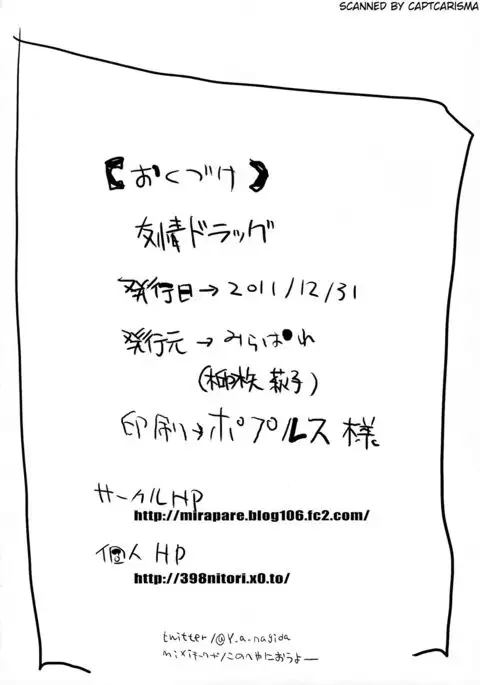 SCANNED BY CAPTCARISMA
【おくづけ】
友情ドラッグ
発行日→2011/12/31
発行元→みらぱれ
印刷→ポプルス様
サークルHP
http://mirapare.blog106.fc2.com/
個人HP
http://398nitori.x0.to/
twitter/@y_a_nagida